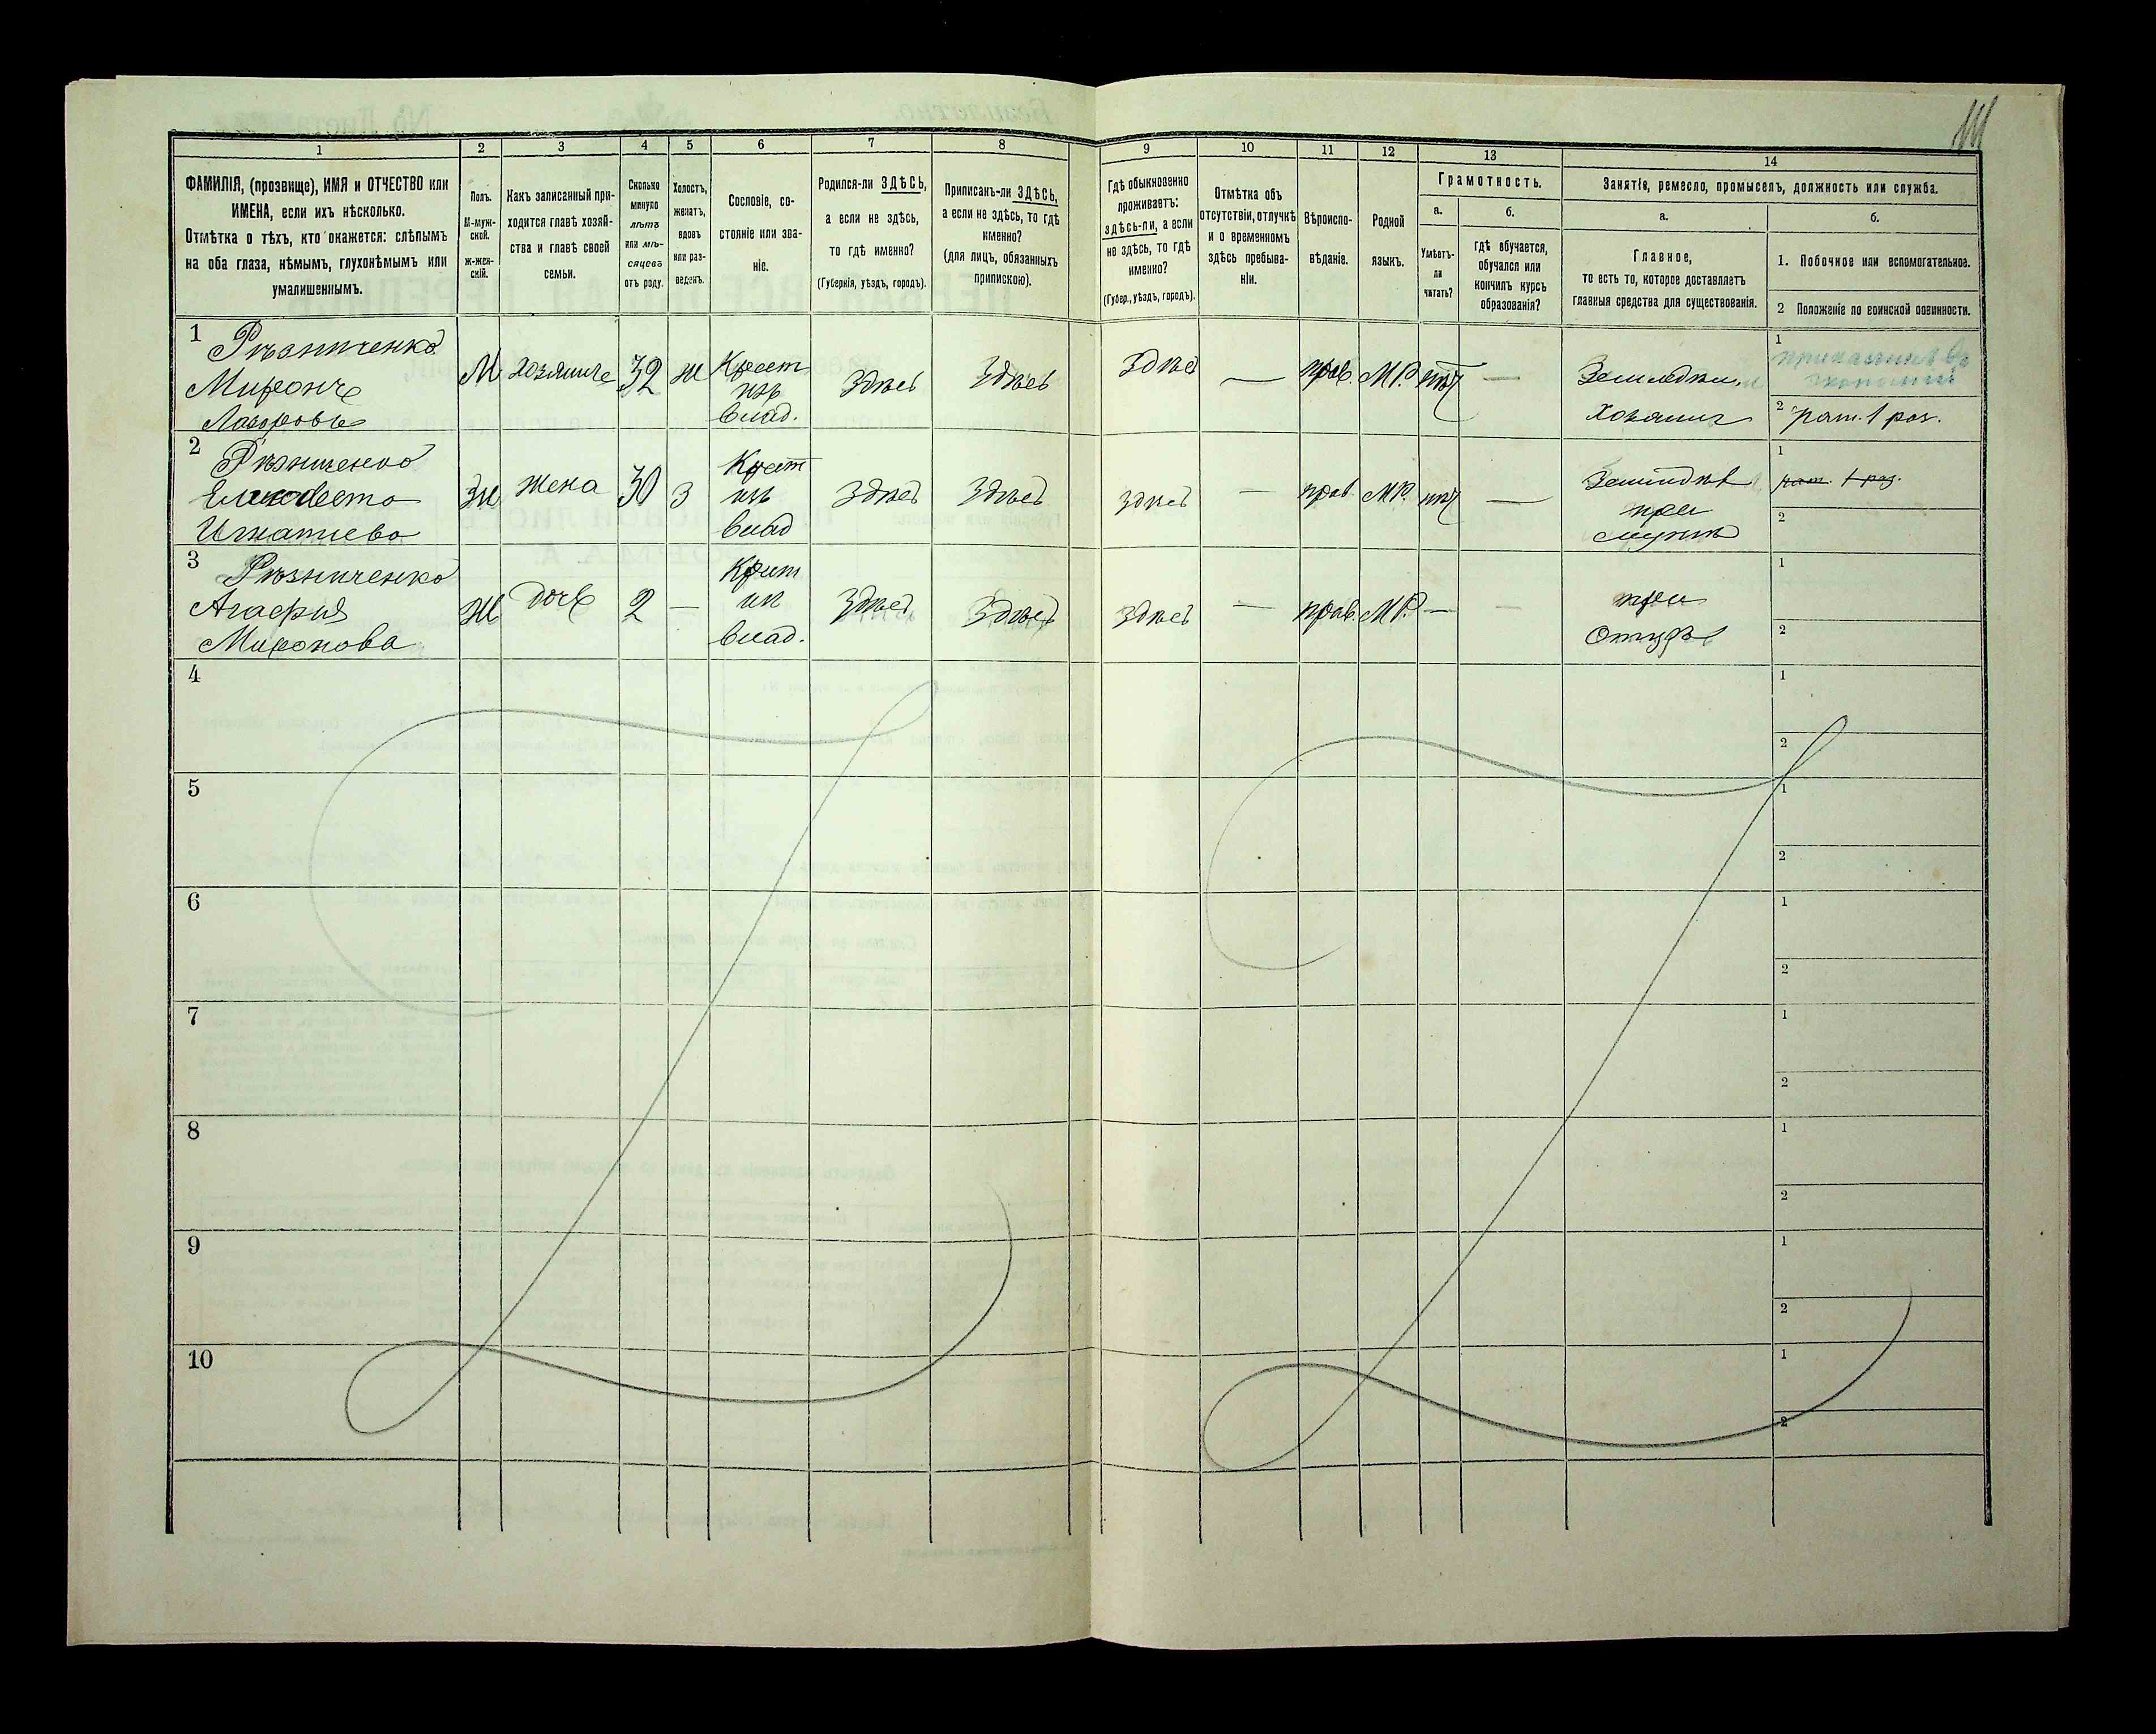 1 2 3 4 5 6 7 8 9 10 11 12 13 14
ФАМИЛІЯ, (прозвище), ИМЯ и ОТЧЕСТВО или
ИМЕНА, если ихъ нѣсколько.
Отмѣтка о тѣхъ, кто окажется: слѣпымъ
на оба глаза, нѣмымъ, глухонѣмымъ или
умалишеннымъ.
Полъ.
М-муж-
ской.
ж-жен-
скій.
Какъ записанный при-
ходится главѣ хозяй-
ства и главѣ своей
семьи.
Сколько
минуло
лѣтъ
или мѣ-
сяцевъ
отъ роду.
Холостъ,
женатъ,
вдовъ
или раз-
веденъ.
Сословіе, со-
стояніе или зва-
ніе.
Родился-ли ЗДѢСЬ,
а если не здѣсь,
то гдѣ именно?
(Губернія, уѣздъ, городъ).
Приписанъ-ли ЗДѢСЬ,
а если не здѣсь, то гдѣ
именно?
(для лицъ, обязанныхъ
припискою).
Гдѣ обыкновенно
проживаетъ:
здѣсь-ли, а если
не здѣсь, то гдѣ
именно?
(Губер., уѣздъ, городъ).
Отмѣтка объ
отсутствіи, отлучкѣ
и о временномъ
здѣсь пребыва-
ніи.
Вѣроиспо-
вѣданіе.
Родной
языкъ.
Грамотность.
а.
Умѣетъ-
ли
читать?
б.
гдѣ обучается,
обучался или
кончилъ курсъ
образованія?
Занятіе, ремесло, промыселъ, должность или служба.
а.
Главное,
то есть то, которое доставляетъ
главныя средства для существованія.
б.
1. Побочное или вспомогательное.
2 Положеніе по воинской повинности.
1
Рѣзниченко
Миронъ
Лазоровъ
М
хозяинъ
32
ж
Крест
изъ
влад.
Здѣсь
Здѣсь
Здѣсь
—
прав.
М.Р.
нѣт
—
Земледѣл.
Хозяинъ
1
2 рат. 1 раз.
2
Рѣзниченко
Елисавета
Игнатиева
Ж
жена
30
З
Крест
изъ
влад
Здѣсь
Здѣсь
Здѣсь
—
прав.
М.Р.
нѣт
—
при
мужѣ
1 рат. 1 раз.
2
3
Рѣзниченко
Агафия
Миронова
Ж
дочь
2
—
Крест
из
влад.
Здѣсь
Здѣсь
Здѣсь
—
прав.
М.Р.
—
—
при
Отцѣ
1
2
4
1
2
5
1
2
6
1
2
7
1
2
8
1
2
9
1
2
10
1
2